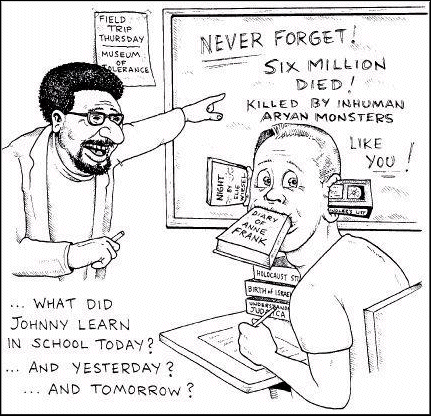 FIELD
TRIP
THURSDAY
MUSEUM
OF
TOLERANCE
NEVER FORGET!
SIX MILLION
DIED!
KILLED BY INHUMAN
ARYAN MONSTERS
LIKE
YOU!
NIGHT
BY
ELIE
WIESEL
DIARY
OF
ANNE
FRANK
HOLOCAUST
BIRTH OF ISRAEL
JUDAICA
... WHAT DID
JOHNNY LEARN
IN SCHOOL TODAY?
... AND YESTERDAY?
... AND TOMORROW?